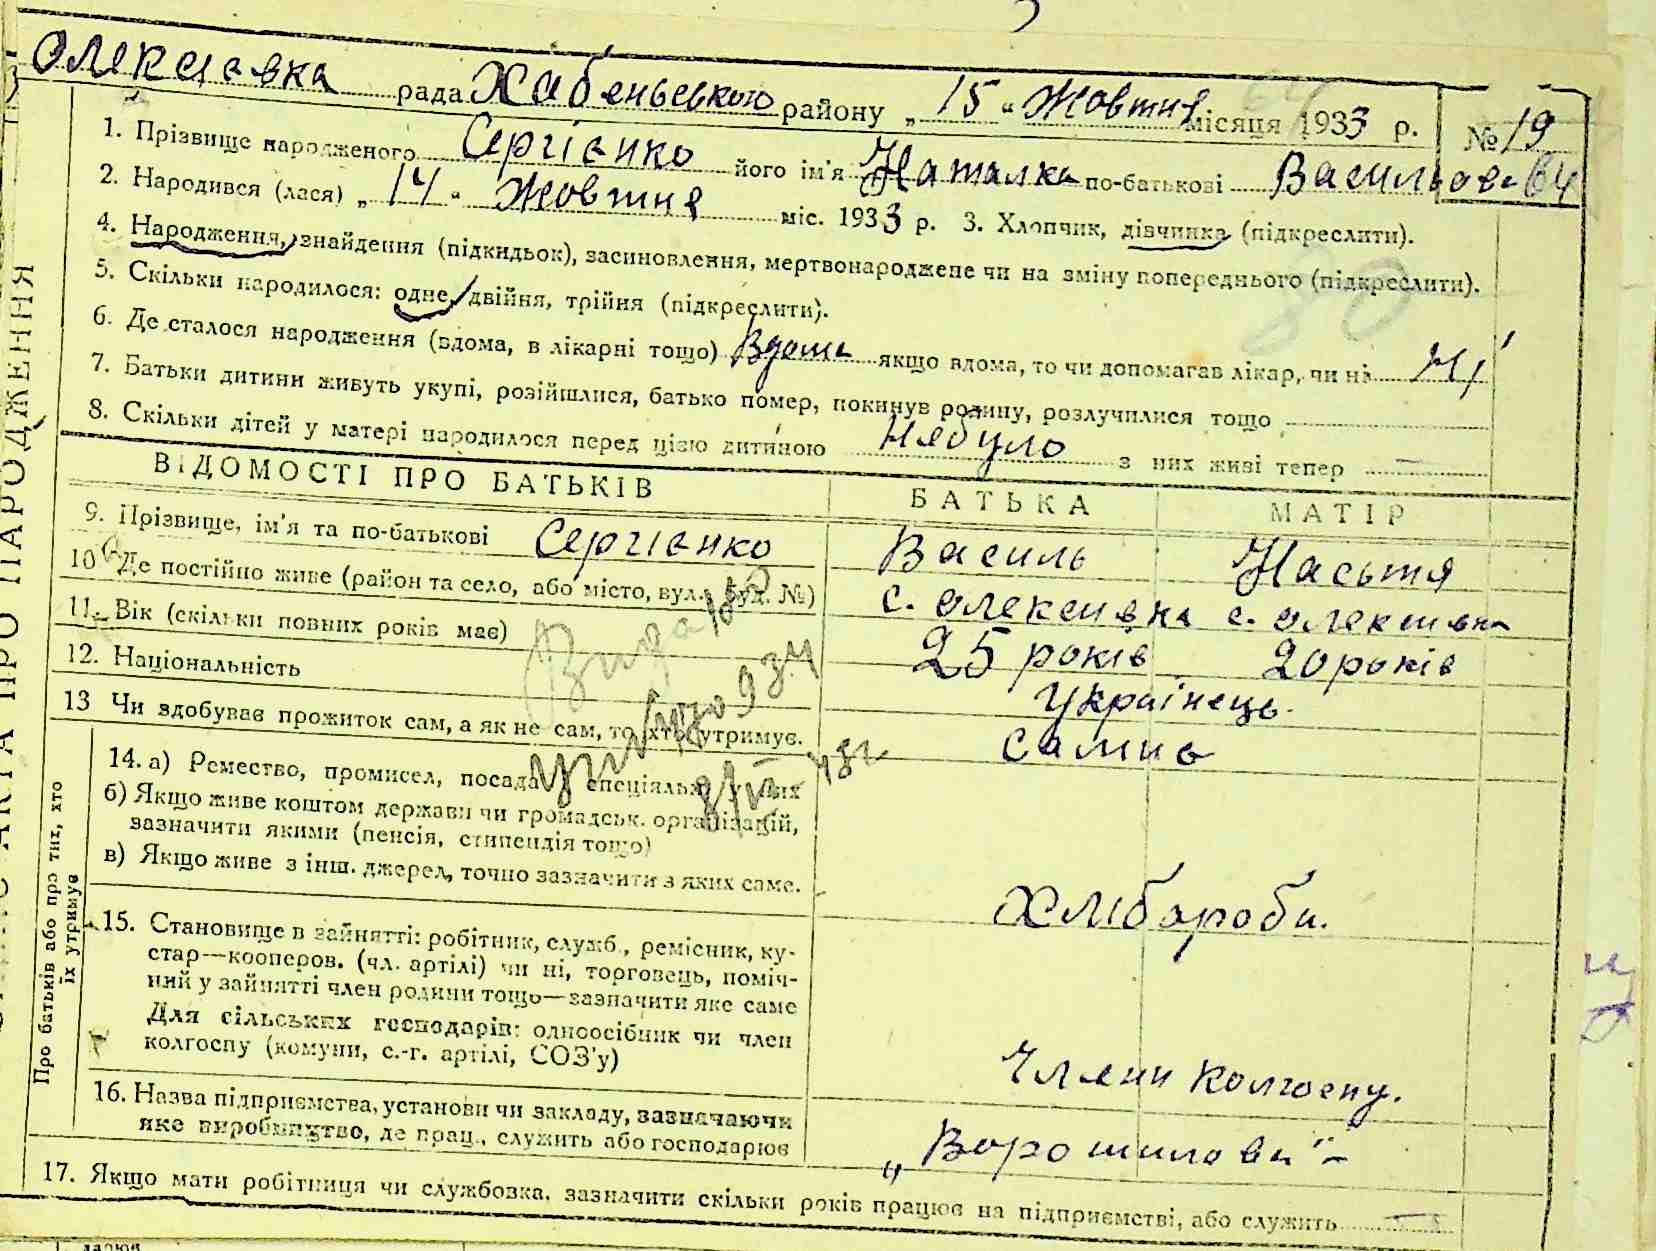 Олексиєвка рада Хабенського району „15“ Жовтня місяця 1933 р. № 19
1. Прізвище народженого Сергієнко його ім'я Наталка по-батькові Васильовна
2. Народився (лася) „14“ Жовтня міс. 1933 р. 3. Хлопчик, дівчинка (підкреслити).
4. Народження, знайдення (підкидьок), засиновлення, мертвонароджене чи на зміну попереднього (підкреслити).
5. Скільки народилося: одне, двійня, трійня (підкреслити).
6. Де сталося народження (вдома, в лікарні тощо) Вдома якщо вдома, то чи допомагав лікар, чи ні Ні
7. Батьки дитини живуть укупі, розійшлися, батько помер, покинув родину, розлучилися тощо
8. Скільки дітей у матері народилося перед цією дитиною Небуло з них живі тепер —
ВІДОМОСТІ ПРО БАТЬКІВ БАТЬКА МАТІР
9. Прізвище, ім'я та по-батькові Сергієнко Василь Насьтя
10 Де постійно живе (район та село, або місто, вул., буд. №) с. Олексиєвка с. Олексиєвка
11. Вік (скільки повних років має) 25 років 20 років
12. Національність Українець.
13 Чи здобуває прожиток сам, а як не сам, то хто утримує. Самив
Про батьків або про тих, хто їх утримує
14. а) Ремество, промисел, посада спеціяльн. у них
б) Якщо живе коштом держави чи громадськ. організацій,
зазначити якими (пенсія, стипендія тощо)
в) Якщо живе з інш. джерел, точно зазначити з яких саме.
Хлібороби.
15. Становище в зайнятті: робітник, служб., ремісник, ку-
стар—кооперов. (чл. артілі) чи ні, торговець, поміч-
ний у зайнятті член родини тощо—зазначити яке саме
Для сільських господарів: одноосібник чи член
колгоспу (комуни, с.-г. артілі, СОЗ'у)
Члени колгоспу.
16. Назва підприємства, установи чи закладу, зазначаючи
яке виробництво, де прац., служить або господарює
„Ворошилова“
17. Якщо мати робітниця чи службовка, зазначити скільки років працює на підприємстві, або служить —